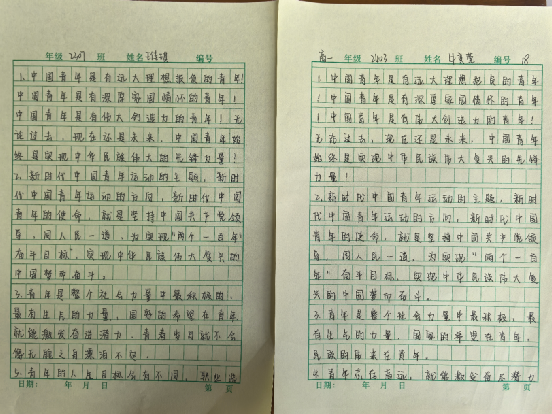 年级 班 姓名 编号
1.中国青年是有远大理想抱负的青年!
中国青年是有深厚家国情怀的青年!
中国青年是有伟大创造力的青年!无
论过去、现在还是未来,中国青年始
终是实现中华民族伟大的先锋力量!
2.新时代中国青年运动的主题,新时
代中国青年运动的方向,新时代中国
青年的使命,就是坚持中国共产党领
导,同人民一道,为实现"两个一百年"
奋斗目标,实现中华民族伟大复兴的
中国梦而奋斗。
3.青年是整个社会力量中最积极的、
最有生气的力量,国家的希望在青年,
日期: 年 月 日 第 页
高一 年级 班 姓名 编号
1.中国青年是有远大理想抱负的青年
!中国青年是有深厚家国情怀的青年
!中国青年是有伟大创造力的青年!
无论过去,现在还是未来,中国青年
始终是实现中华民族伟大复兴的先锋
力量!
2.新时代中国青年运动的主题,新时
代中国青年运动的方向,新时代中国
青年的使命,就是坚持中国共产党领
导,同人民一道,为实现"两个一百
年"奋斗目标,实现中华民族伟大复
兴的中国梦而奋斗。
3.青年是整个社会力量中最积极,最
有生气的力量,国家的希望在青年,
民族的未来在青年。
日期: 年 月 日 第 页